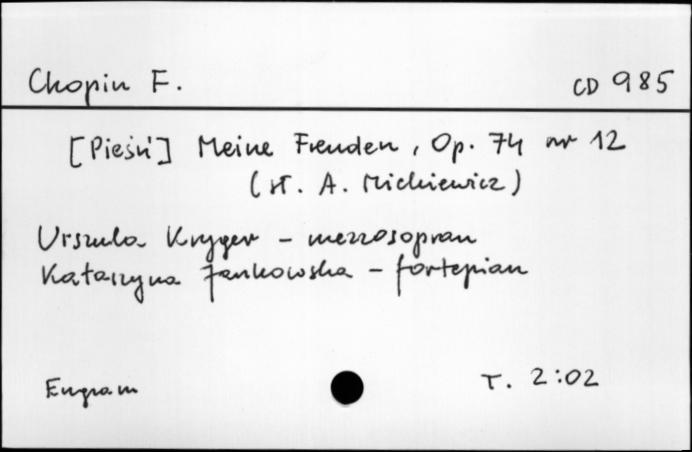 Chopin F.
CD 985
[Pieśń] Meine Freuden, Op. 74 nr 12
(sł. A. Mickiewicz)
Urszula Kryger - mezzosopran
Katarzyna Jankowska - fortepian
Engram
T. 2:02